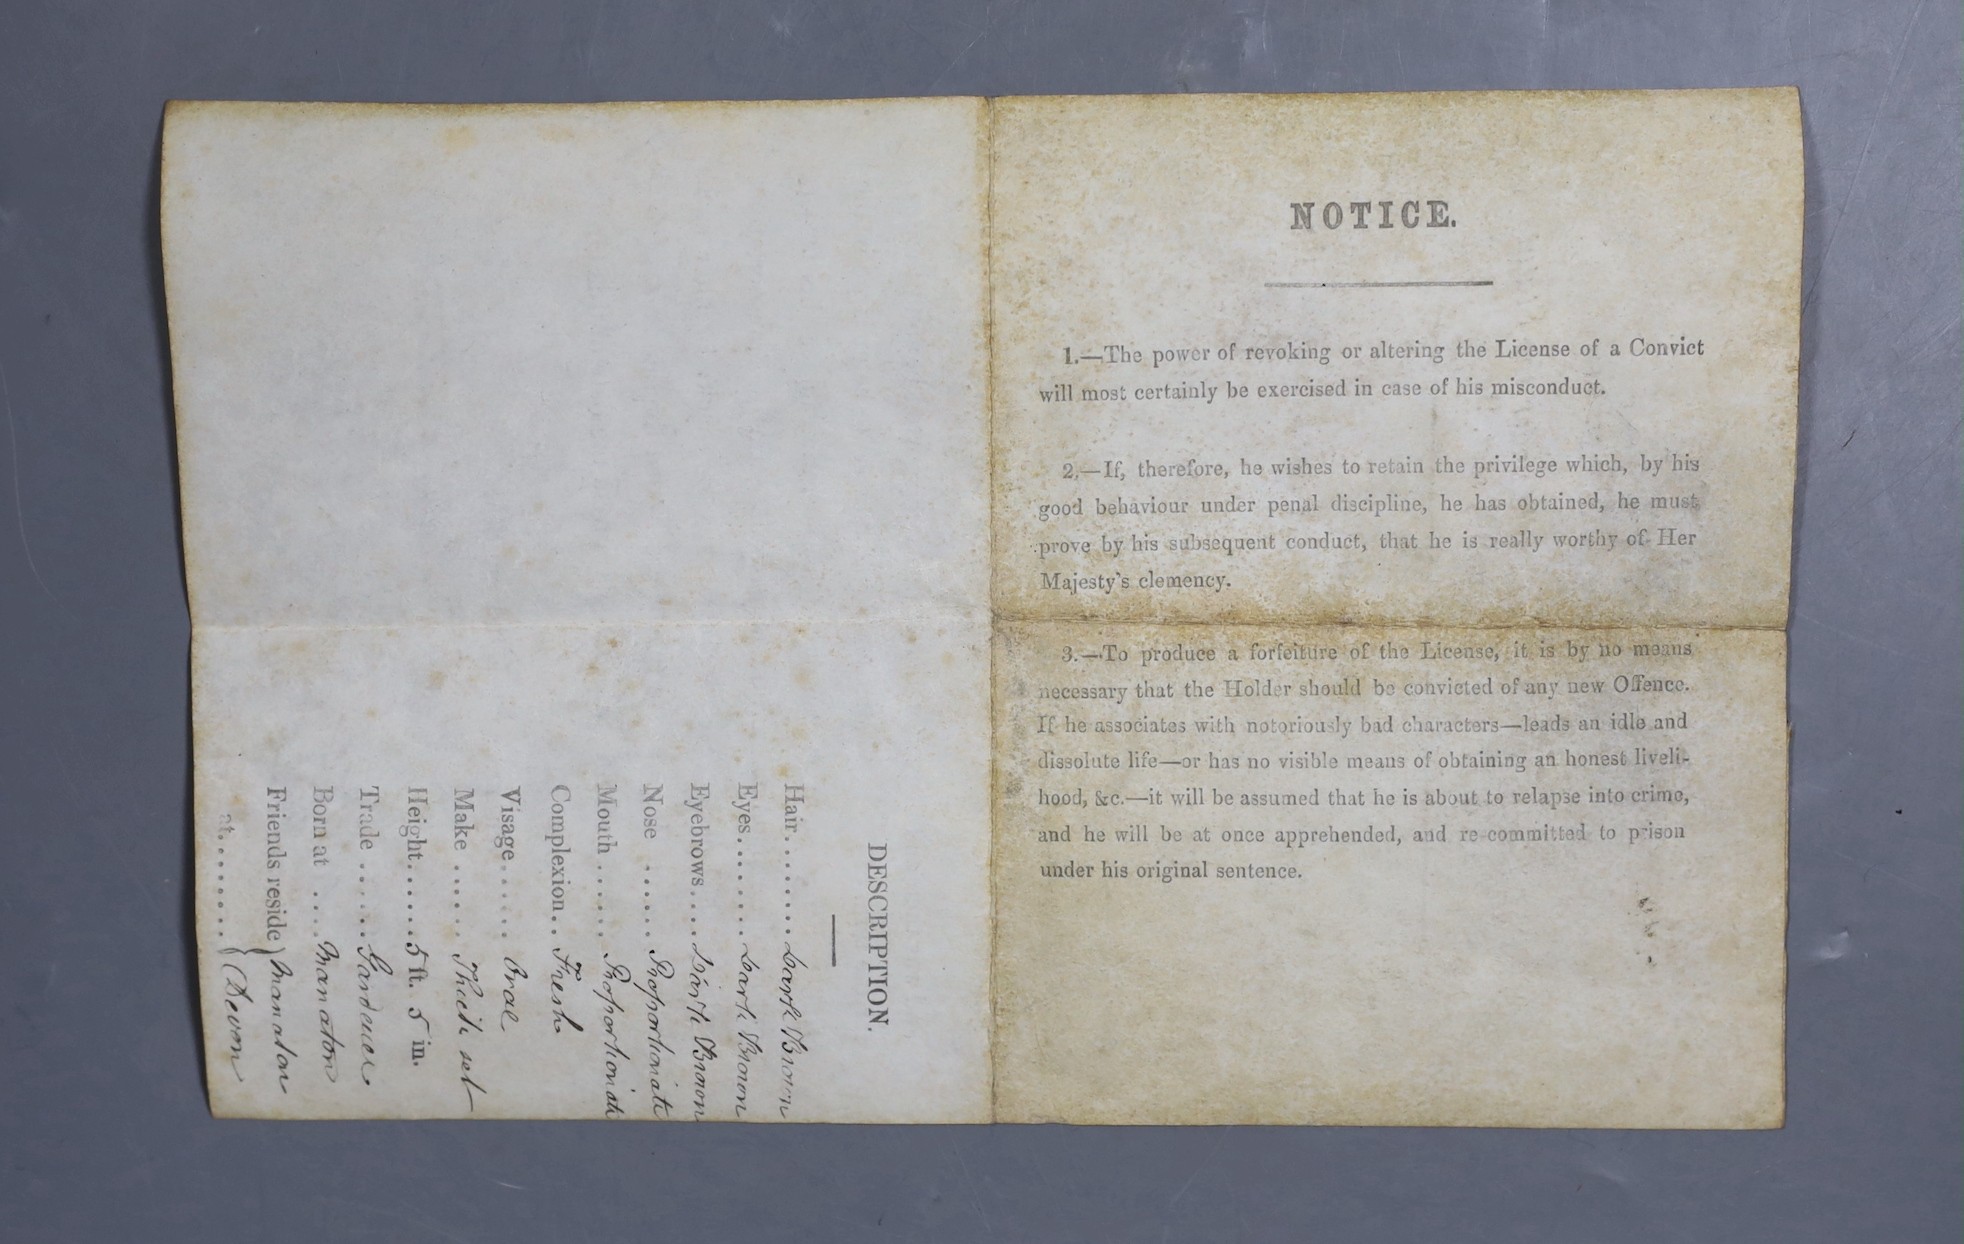 NOTICE.
1.—The power of revoking or altering the License of a Convict
will most certainly be exercised in case of his misconduct.
2.—If, therefore, he wishes to retain the privilege which, by his
good behaviour under penal discipline, he has obtained, he must
prove by his subsequent conduct, that he is really worthy of Her
Majesty's clemency.
3.—To produce a forfeiture of the License, it is by no means
necessary that the Holder should be convicted of any new Offence.
If he associates with notoriously bad characters—leads an idle and
dissolute life—or has no visible means of obtaining an honest liveli-
hood, &c.—it will be assumed that he is about to relapse into crime,
and he will be at once apprehended, and re-committed to prison
under his original sentence.
DESCRIPTION.
Hair........Dark Brown
Eyes........Dark Brown
Eyebrows....Dark Brown
Nose ......Proportionate
Mouth ......Proportionate
Complexion..Fresh
Visage......Oval
Make ......Thick set
Height......5 ft. 5 in.
Trade ......Gardener
Born at ....Manaton
Friends reside } Manaton
at........ { Devon